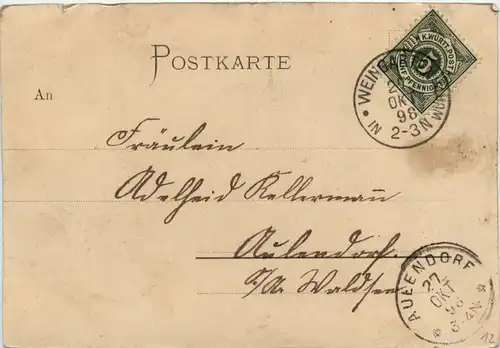 POSTKARTE
K. WÜRTT. POST
5
PFENNIG
WEINGARTEN
IN WÜRTT
27
OKT
98
2-3N
An
Fräulein
Adelheid Kellermann
Aulendorf
O/A. Waldsee
AULENDORF
27
OKT
98
3-4N
12